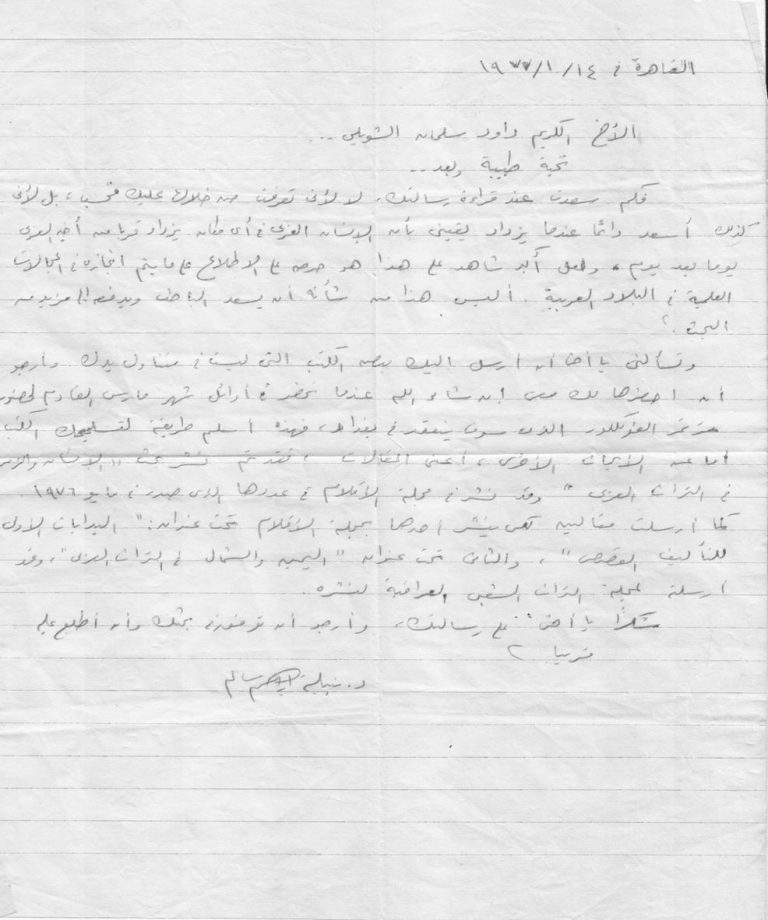 القاهرة في ١٤/١/١٩٧٧
الأخ الكريم داود سلمان الشويلي ...
تحية طيبة وبعد ..
فكم سعدت عند قراءة رسالتك، لا لأنى تعرفت من خلالها عليك فحسب، بل لأنى
كذلك أسعد دائما عندما يزداد يقينى بأن الإنسان العربى في أى مكان يزداد قربا من أخيه العربى
يوما بعد يوم، ولعل أكبر شاهد على هذا هو حرصه على الاطلاع على ما يتم انجازه في المجالات
العلمية في البلاد العربية. أليس هذا من شأنه أن يسعد الباحث ويدفعه الى مزيد من
البحث؟
وتسألنى يا أخى أن أرسل اليك بعض الكتب التى ليست في متناول يدك وأرجو
أن احضرها لك معى إن شاء الله عندما نحضر في أوائل شهر مارس القادم لحضور
مؤتمر الفولكلور الذى سوف ينعقد في بغداد، فهذه أسلم طريقة لتسليمك الكتب
أما عن الأبحاث الأخرى، أعنى المقالات، فقد تم نشر بحث "الإنسان والزمن
في التراث العربى" وقد نشر في مجلة الأقلام في عددها الذى صدر في مايو ١٩٧٦.
كما أرسلت مقالين لكى ينشر احدها بمجلة الأقلام تحت عنوان: "البدايات الاولى
للتأليف القصصى"، والثانى تحت عنوان "اليمين والشمال في التراث العربى"، وقد
ارسلته لمجلة التراث الشعبى العراقية لنشره.
شكرا يا أخى على رسالتك، وأرجو أن توفق في بحثك وأن أطلع عليه
قريبا
د. نبيلة إبراهيم سالم